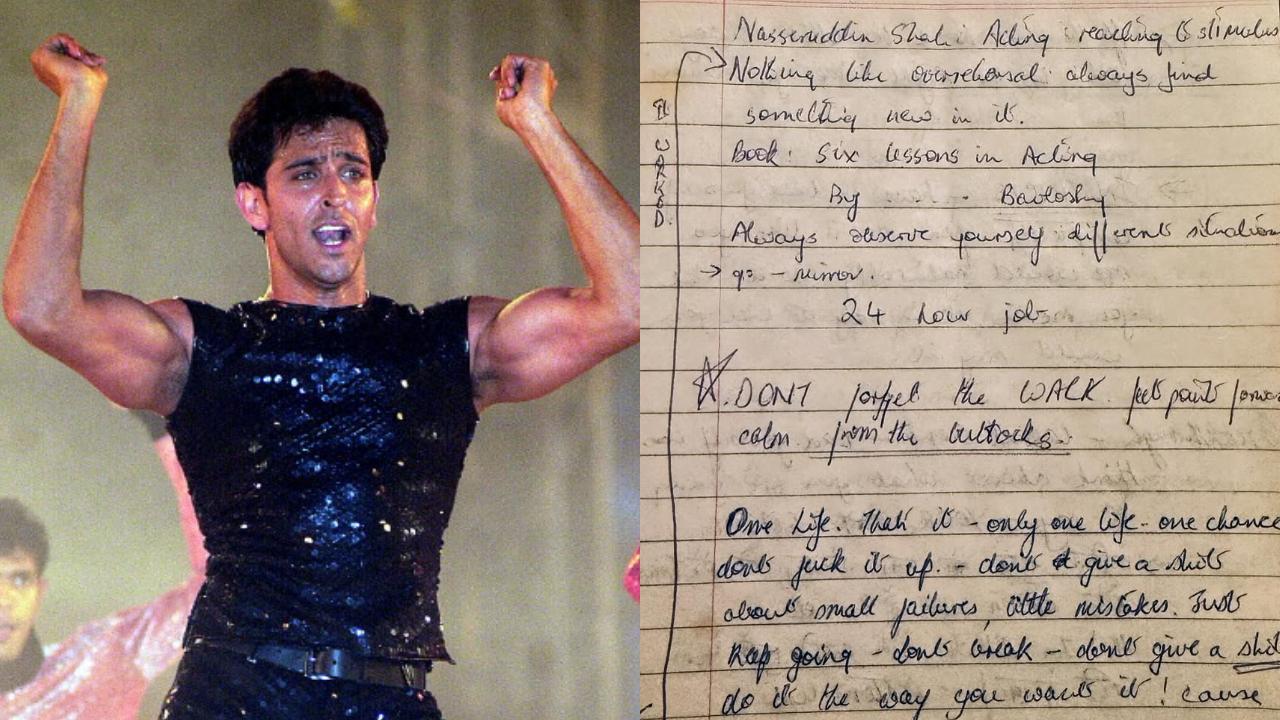 Nasseruddin Shah: Acting reacting to stimulus
Nothing like overrehersal: always find
something new in it.
IT WORKED.
Book: Six lessons in Acting
By - -
Always observe yourself different situation
→ - mirror.
24 hour job
☆. DONT forget the WALK. feet point forwa
calm from the buttocks.
One life. That it - only one life - one chance
dont fuck it up. - dont give a shit
about small failures, little mistakes. Just
Keep going - dont break - dont give a shit
do it the way you want it! cause